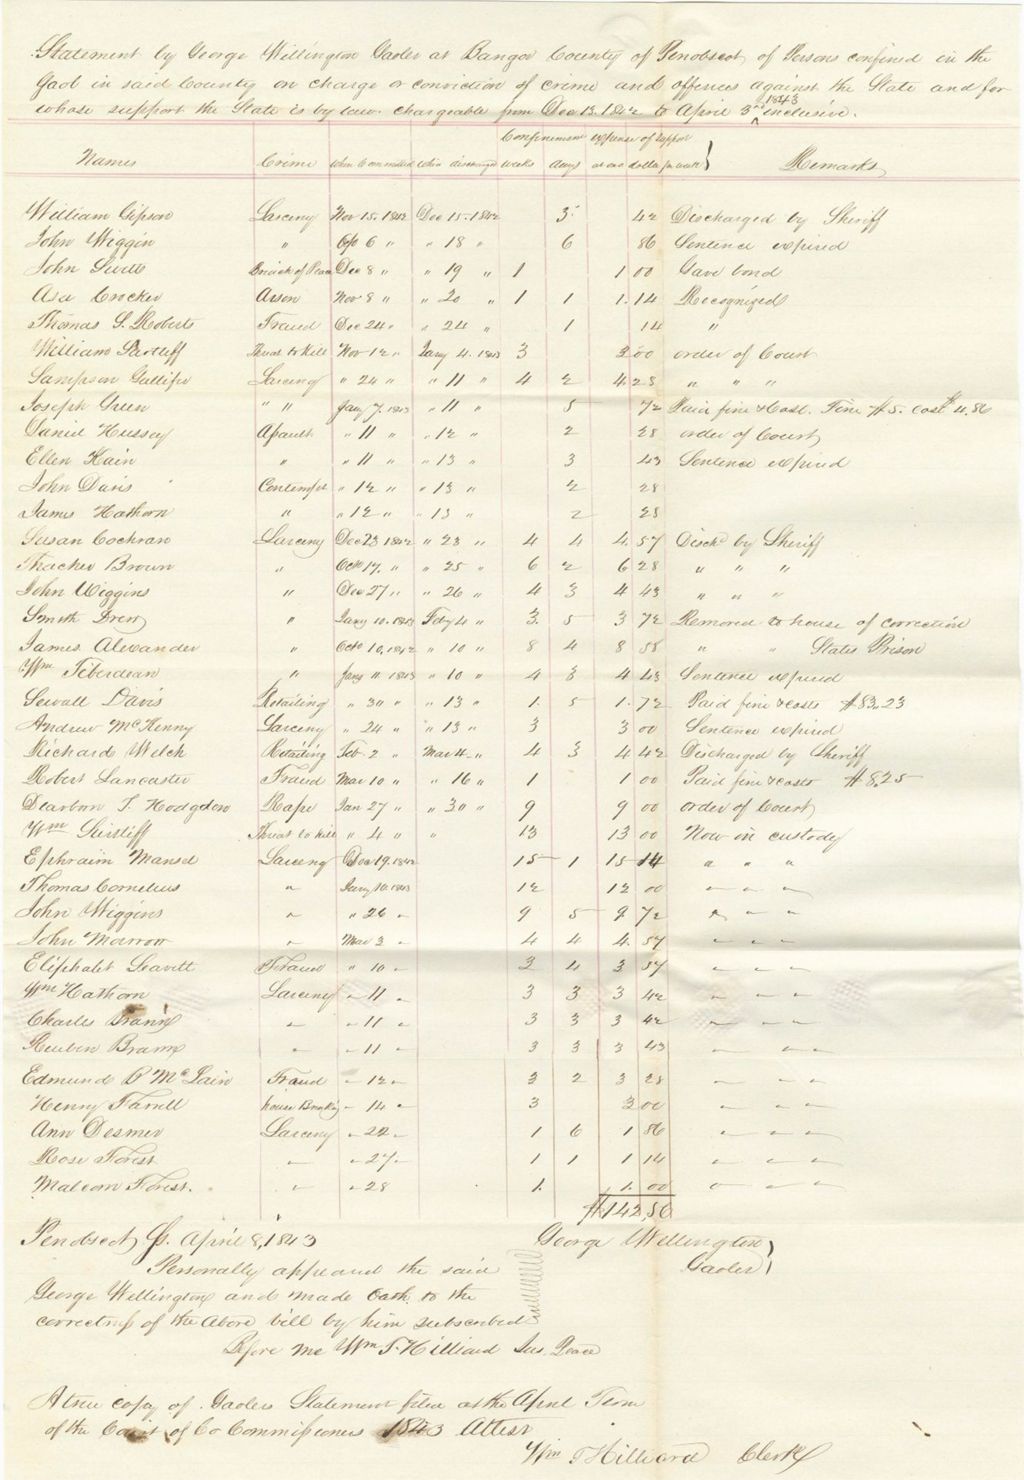 Statement by George Wellington Gaoler at Bangor County of Penobscot of Persons confined in the
Gaol in said County on charge or conviction of crime and offences against the State and for
whose support the State is by law chargeable from Dec 13. 1842 to April 3rd 1843 inclusive.
Confinement expense of support
Names Crime When Committed When discharged weeks days at one dollar per week Remarks
William Gipson Larceny Nov 15. 1842 Dec 15. 1842 3 42 Discharged by Sheriff
John Wiggin " Oct 6 " " 18 " 6 86 Sentence expired
John Swett Breach of Peace Dec 8 " " 19 " 1 1 00 Gave bond
Asa Crocker Arson Nov 8 " " 20 " 1 1 1.14 Recognized
Thomas S. Roberts Fraud Dec 24 " " 24 " 1 14 "
William Sartliff Threat to Kill Nov 12 " Jany 4. 1843 3 3 00 order of Court
Sampson Gallifer Larceny " 24 " " 11 " 4 2 4 28 " " "
Joseph Green " " Jany 7. 1843 " 11 " 5 72 Paid fine & Cost. Fine $5. cost $4.86
Daniel Hussey Assault " 11 " " 12 " 2 28 order of Court
Ellen Hain " " 11 " " 13 " 3 43 Sentence expired
John Davis Contempt " 12 " " 13 " 2 28
James Hathorn " " 12 " " 13 " 2 28
Susan Cochran Larceny Dec 23 1842 " 23 " 4 4 4.57 Disch'd by Sheriff
Thacher Brown " Oct 17. " " 25 " 6 2 6 28 " " "
John Wiggins " Dec 27 " " 26 " 4 3 4 43 " " "
Smith Drew " Jany 10. 1843 Feby 4 " 3. 5 3 72 Removed to house of correction
James Alexander " Oct 10, 1842 " 10 " 8 4 8 58 " " States Prison
Wm Tiberdean " Jany 11 1843 " 10 " 4 3 4 43 Sentence expired
Sewall Davis Retailing " 30 " " 13 " 1. 5 1.72 Paid fine & costs $33.23
Andrew McKenny Larceny " 24 " " 13 " 3 3 00 Sentence expired
Richard Welch Retailing Feb 2 " Mar 4 " 4 3 4 42 Discharged by Sheriff
Robert Lancaster Fraud Mar 10 " " 16 " 1 1 00 Paid fine & costs $8,25
Dearborn T. Hodgdon Rape Jan 27 " " 30 " 9 9 00 order of Court
Wm Sirtliff Threat to kill " 4 " " 13 13 00 Now in custody
Ephraim Mansel Larceny Dec 19. 1842 15 1 15 14 " " "
Thomas Cornelius " Jany 10. 1843 12 12 00 " " "
John Wiggins " " 26 " 9 5 9 72 " " "
John Morrow " Mar 3 " 4 4 4.57 " " "
Eliphalet Leavitt Fraud " 10 " 3 4 3 57 " " "
Wm Hathorn Larceny " 11 " 3 3 3 42 " " "
Charles Brann " " 11 " 3 3 3 42 " " "
Reuben Brann " " 11 " 3 3 3 43 " " "
Edmund B McLain Fraud " 12 " 3 2 3 28 " " "
Henny Farrell house Breaking " 14 " 3 3 00 " " "
Ann Desmer Larceny " 22 " 1 6 1 86 " " "
Rose Forest " " 27 " 1 1 1 14 " " "
Malcom Forest. " " 28 1. 1. 00 " " "
$142,86
Penobscot Ss. April 8, 1843 George Wellington
Personally appeared the said Gaoler
George Wellington and made Oath to the
correctness of the above bill by him subscribed
Before me Wm T. Hilliard Jus Peace
A true copy of Gaolers Statement filed at the April Term
of the Court of Co Commissioners 1843 Attest
Wm T Hilliard Clerk